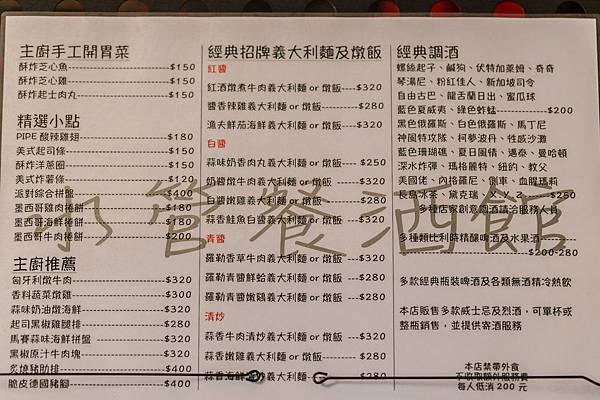 主廚手工開胃菜
酥炸芝心魚 $150
酥炸芝心雞 $150
酥炸起士肉丸 $150
精選小點
PIPE 酸辣雞翅 $180
美式起司條 $150
酥炸洋蔥圈 $150
美式炸薯條 $120
派對綜合拼盤 $400
墨西哥雞肉捲餅 $180
墨西哥海鮮捲餅 $180
墨西哥牛肉捲餅 $200
主廚推薦
匈牙利燉牛肉 $320
香料蔬菜燉雞 $300
蒜味奶油燉海鮮 $320
起司黑椒雞腿排 $280
馬賽蒜味海鮮拼盤 $320
黑椒原汁牛肉塊 $320
炙燒豬肋排 $400
脆皮德國豬腳 $400
經典招牌義大利麵及燉飯
紅醬
紅酒燉煮牛肉義大利麵 or 燉飯 $320
醬香辣雞義大利麵 or 燉飯 $280
漁夫鮮茄海鮮義大利麵 or 燉飯 $320
白醬
蒜味奶香肉丸義大利麵 or 燉飯 $250
奶醬燉牛肉義大利麵 or 燉飯 $320
白醬嫩雞義大利麵 or 燉飯 $280
蒜香鮭魚白醬義大利麵 or 燉飯 $320
青醬
羅勒香草牛肉義大利麵 or 燉飯 $320
羅勒青醬鮮蛤義大利麵 or 燉飯 $280
羅勒青醬嫩雞義大利麵 or 燉飯 $280
清炒
蒜香牛肉清炒義大利麵 or 燉飯 $320
蒜香嫩雞義大利麵 or 燉飯 $280
蒜香海鮮清炒義大利麵 or 燉飯 $320
經典調酒
螺絲起子、鹹狗、伏特加萊姆、奇奇
琴湯尼、粉紅佳人、新加坡司令
自由古巴、龍舌蘭日出、蜜瓜球
藍色夏威夷、綠色蚱蜢 $200
黑色俄羅斯、白色俄羅斯、馬丁尼
神風特攻隊、柯夢波丹、性感沙灘
藍色珊瑚礁、夏日風情、邁泰、曼哈頓
深水炸彈、瑪格麗特、紐約、教父
美國佬、內格羅尼、側車、血腥瑪莉
長島冰茶、黛克瑞、X.X.X $250
多種店家創意調酒請洽服務人員
多種類比利時精釀啤酒及水果酒
$200-280
多款經典瓶裝啤酒及各類無酒精冷熱飲
本店販售多款威士忌及烈酒，可單杯或
整瓶銷售，並提供寄酒服務
本店禁帶外食
不收取額外服務費
每人低消 200 元
水管餐酒館